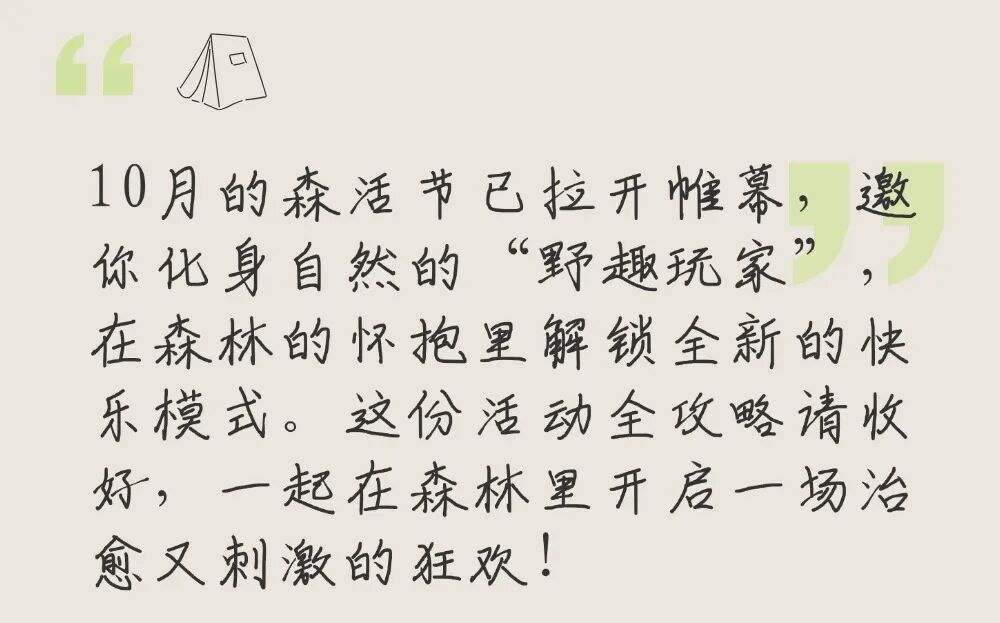 10月的森活节已拉开帷幕，邀
你化身自然的“野趣玩家”，
在森林的怀抱里解锁全新的快
乐模式。这份活动全攻略请收
好，一起在森林里开启一场治
愈又刺激的狂欢！